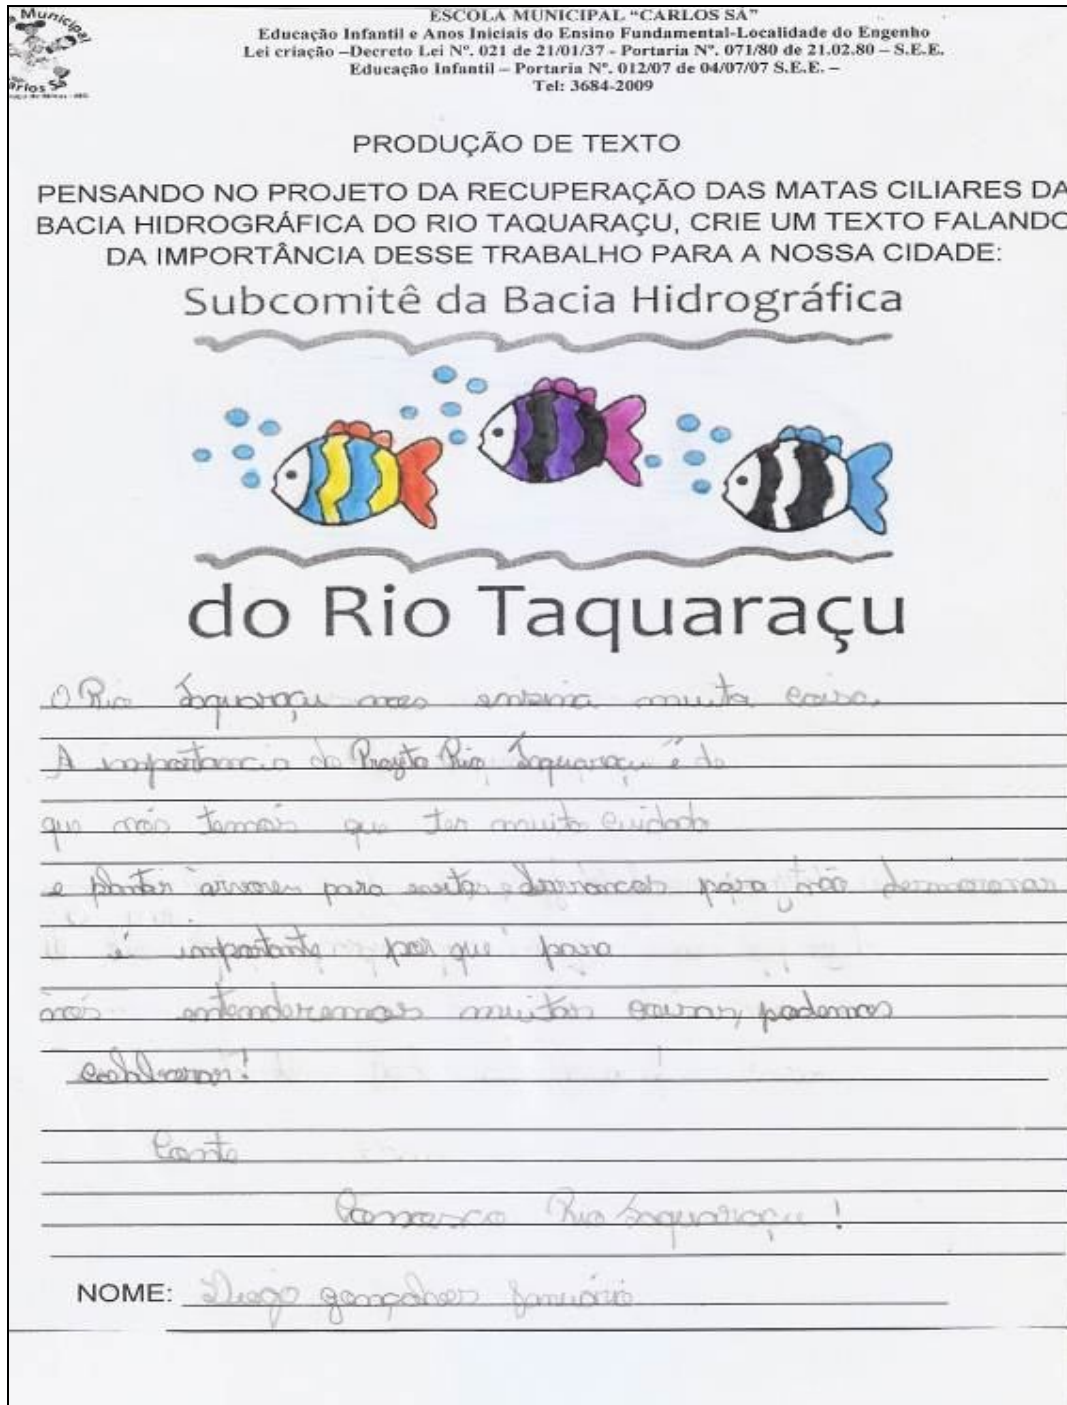 Municipal
Carlos Sá
ESCOLA MUNICIPAL "CARLOS SÁ"
Educação Infantil e Anos Iniciais do Ensino Fundamental-Localidade do Engenho
Lei criação –Decreto Lei Nº. 021 de 21/01/37 - Portaria Nº. 071/80 de 21.02.80 – S.E.E.
Educação Infantil – Portaria Nº. 012/07 de 04/07/07 S.E.E. –
Tel: 3684-2009
PRODUÇÃO DE TEXTO
PENSANDO NO PROJETO DA RECUPERAÇÃO DAS MATAS CILIARES DA
BACIA HIDROGRÁFICA DO RIO TAQUARAÇU, CRIE UM TEXTO FALANDO
DA IMPORTÂNCIA DESSE TRABALHO PARA A NOSSA CIDADE:
Subcomitê da Bacia Hidrográfica
do Rio Taquaraçu
O Rio Taquaraçu nos ensina muita coisa,
A importancia do Projeto Rio Taquaraçu é do
que nós temos que ter muito cuidado
e plantar arvores para evitar, derrancos para não desmoronar
é importante por que para
nós entenderemos muitas coisas, podemos
Conte
Conosco Rio Taquaraçu!
NOME: Diego gonçalves Januário